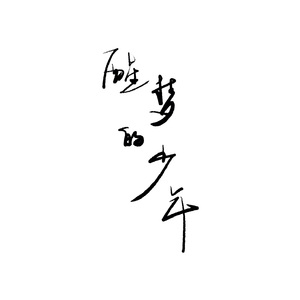 醒梦的少年